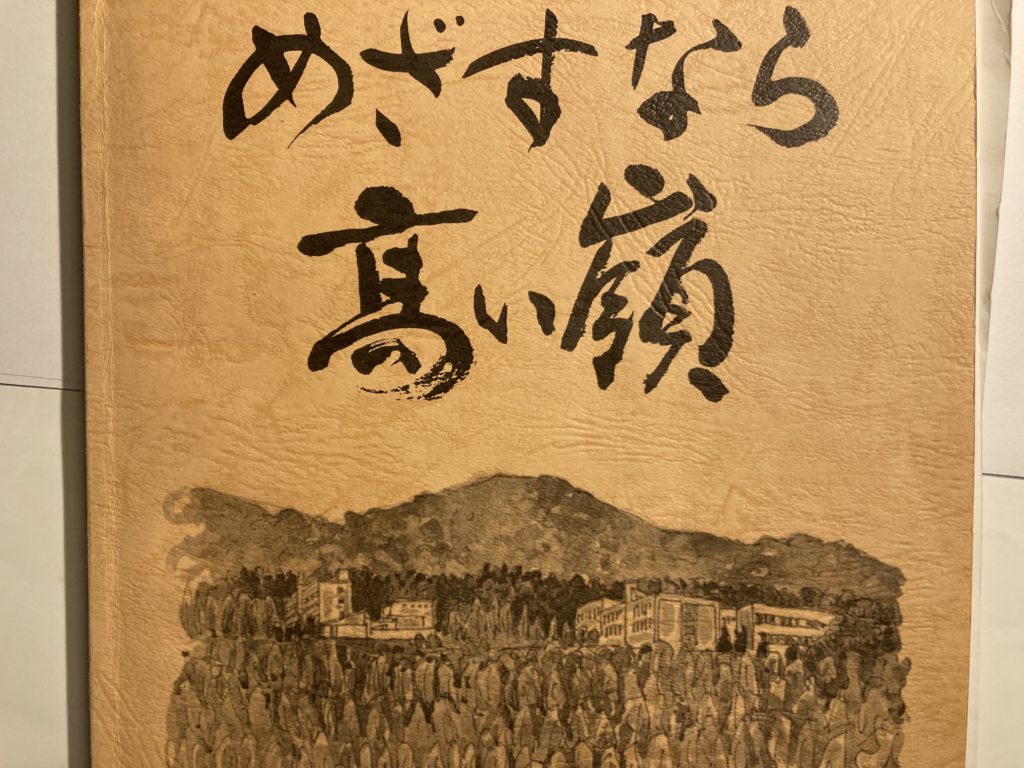 めざすなら
高い嶺